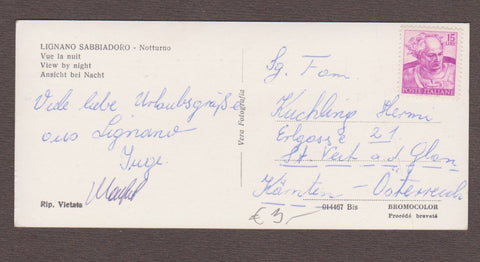 LIGNANO SABBIADORO - Notturno
Vue la nuit
View by night
Ansicht bei Nacht
Viele liebe Urlaubsgrüße
aus Lignano
Inge.
Rip. Vietata
Vera Fotografia
15
LIRE
POSTE ITALIANE
Sg. Fam.
Kuchling Hermi
Erlgasse 21
St. Veit a.d. Glan
Kärnten - Österreich
014467 Bis
BROMOCOLOR
Procédé breveté
€ 3,-